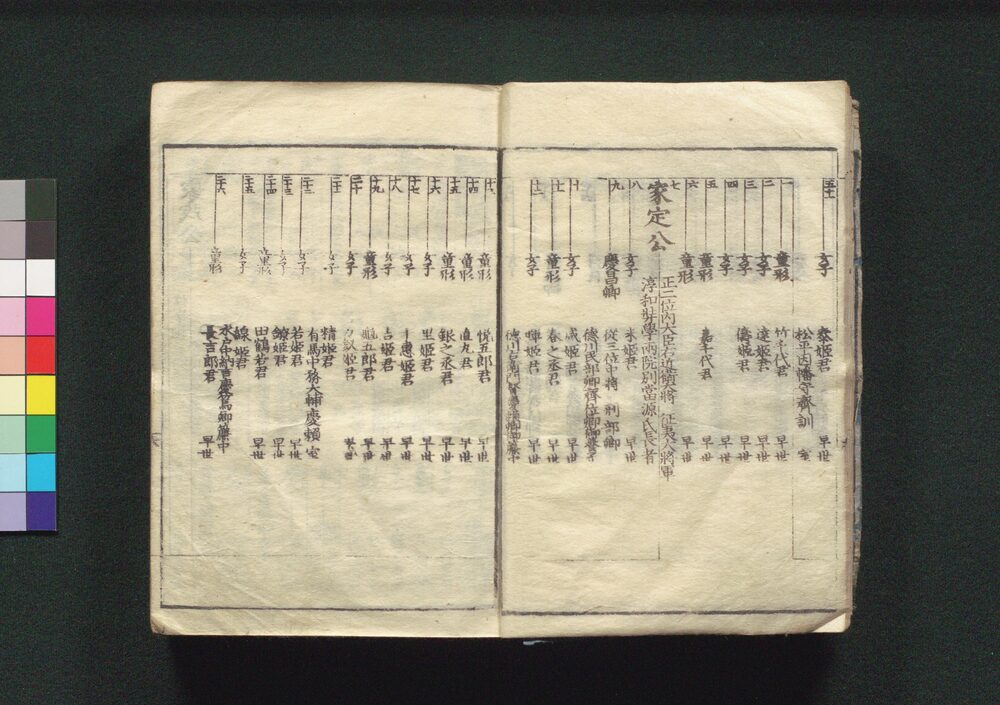 五十三 女子 泰姫君 早世
松平因幡守齊訓 室
一 童形 竹千代君 早世
二 女子 達姫君 早世
三 女子 儔姫君 早世
四 女子 早世
五 童形 嘉千代君 早世
六 童形 早世
七 家定公 正二位内大臣右近衛大將 征夷大將軍
淳和奬學兩院別當源氏長者
八 女子 米姫君 早世
九 慶昌卿 從三位中將 刑部卿
德川民部卿齊位卿御養子
十 女子 咸姫君 早世
十一 童形 春之丞君 早世
十二 女子 暉姫君 早世
童形 悦五郎君 早世
十四 童形 直丸君 早世
十五 童形 銀之丞君 早世
十六 女子 里姫君 早世
十七 女子 千惠姫君 早世
十八 女子 吉姫君 早世
十九 童形 龜五郎君 早世
二十 女子 姫君 早世
女子 精姫君
有馬中務大輔慶賴 室
女子 若姫君 早世
女子 鐐姫君 早世
二十四 童形 田鶴若君 早世
二十五 女子 線姫君
水戸中納言慶篤卿簾中
二十六 童形 長吉郎君 早世